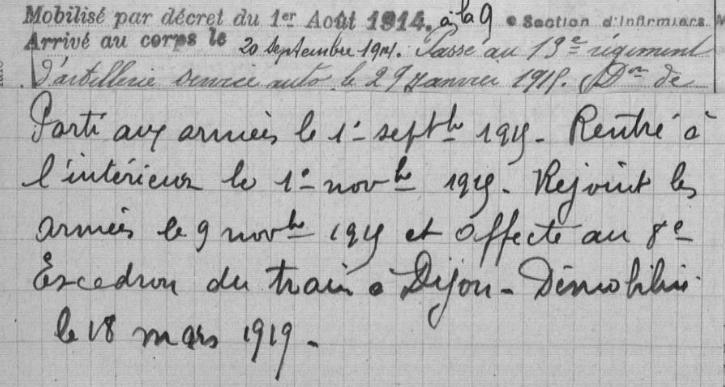 Mobilisé par décret du 1er Août 1914. à la 9e Section d'Infirmiers.
Arrivé au corps le 20 septembre 1914. Passé au 13e régiment
d'artillerie service auto le 29 janvier 1915. Don de
Parti aux armées le 1er septbre 1915. Rentré à
l'intérieur le 1er novbre 1915. Rejoint les
armées le 9 novbre 1915 et affecté au 8e
Escadron du train à Dijon - Démobilisé
le 18 mars 1919.